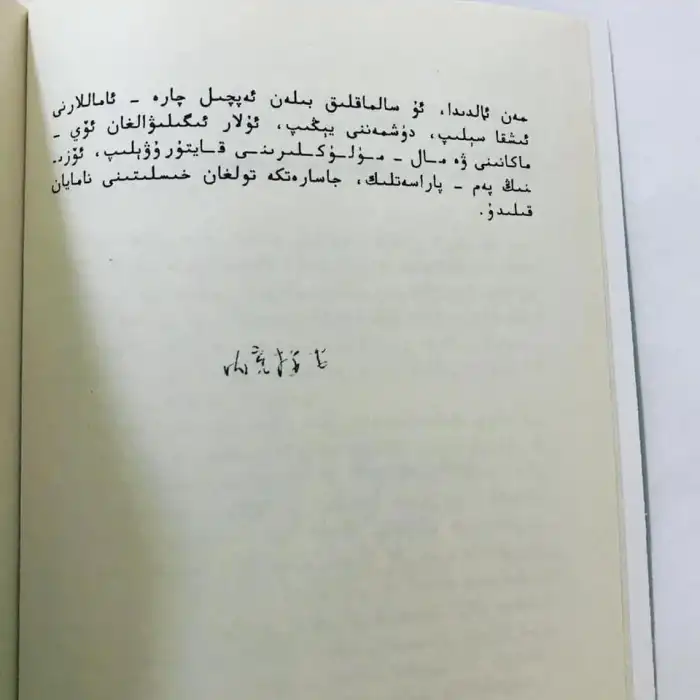 مەن ئالدىدا، ئۇ سالماقلىق بىلەن ئەپچىل چارە - ئاماللارنى
ئىشقا سېلىپ، دۈشمەننى يېڭىپ، ئۇلار ئىگىلىۋالغان ئۆي -
ماكانىنى ۋە مال - مۈلۈكلىرىنى قايتۇرۇۋېلىپ، ئۆزى-
نىڭ پەم - پاراسەتلىك، جاسارەتكە تولغان خىسلىتىنى نامايان
قىلىدۇ.